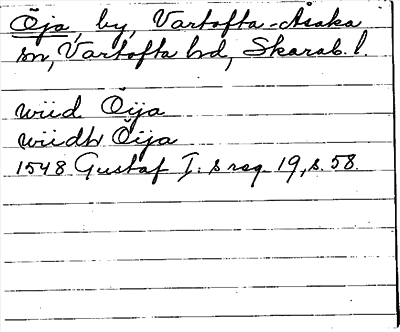 Öja, by, Vartofta-Åsaka
sn, Vartofta hd, Skarab. l.
wiid Öija
wiidh Öija
1548 Gustaf I:s reg. 19, s. 58.